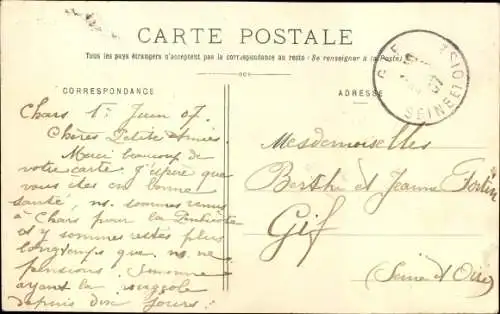 CARTE POSTALE
Tous les pays étrangers n'acceptent pas la correspondance au recto (Se renseigner à la Poste)
CORRESPONDANCE
ADRESSE
SEINE ET OISE
Chars 1r Juin 07.
Chères Petites Amies.
Merci beaucoup de
votre carte. J'espère que
vous êtes en bonne
santé, ns. sommes venus
à Chars pour la Pentecôte
et y sommes restés plus
longtemps que ns. ne
pensions. Simonne
ayant la rougeole
depuis dix jours.
Mesdemoiselles
Berthe et Jeanne Fortin
Gif
(Seine et Oise)